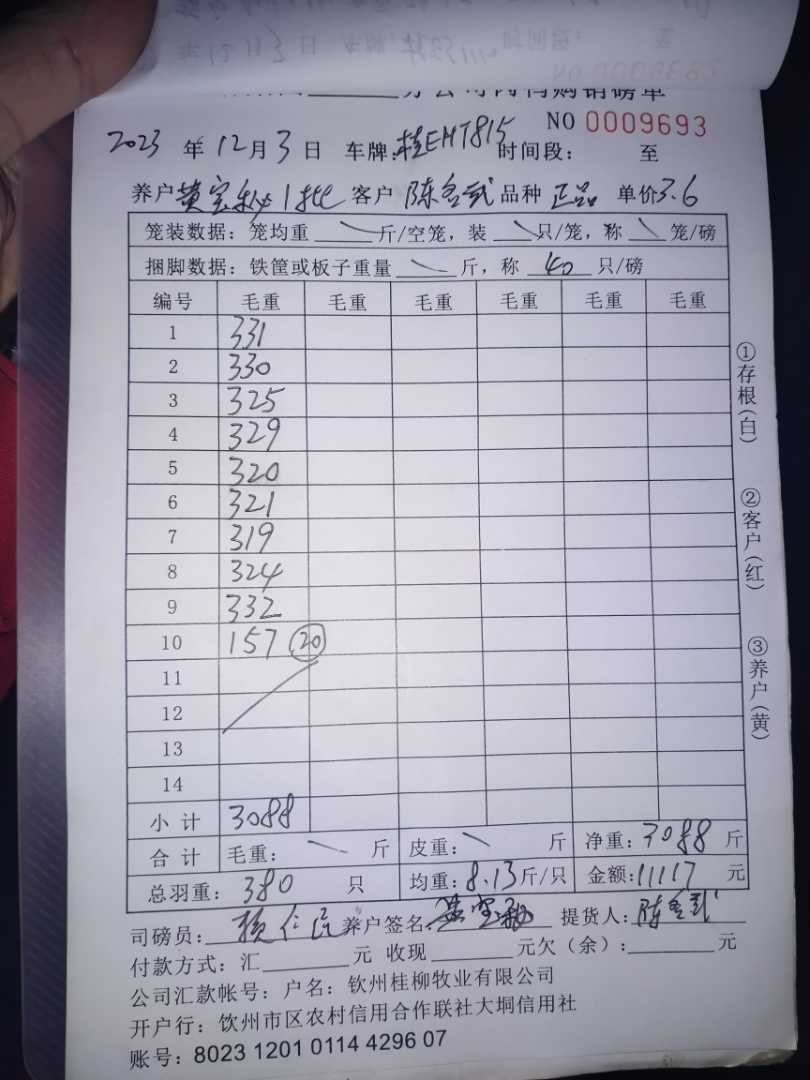 分公司内档购销磅单
NO 0009693
2023 年 12 月 3 日 车牌: 桂EHT815 时间段: 至
养户 黄宝 1批 客户 陈 武 品种 正品 单价 3.6
笼装数据: 笼均重 斤/空笼, 装 只/笼, 称 笼/磅
捆脚数据: 铁筐或板子重量 斤, 称 40 只/磅
编号 毛重 毛重 毛重 毛重 毛重 毛重
1 331
2 330
3 325
4 329
5 320
6 321
7 319
8 324
9 332
10 157 20
11
12
13
14
小计 3088
合计 毛重: 斤 皮重: 斤 净重: 3088 斤
总羽重: 380 只 均重: 8.13 斤/只 金额: 11117 元
司磅员: 养户签名: 提货人: 陈 武
付款方式: 汇 元 收现 元欠(余): 元
公司汇款帐号: 户名: 钦州桂柳牧业有限公司
开户行: 饮州市区农村信用合作联社大垌信用社
账号: 8023 1201 0114 4296 07
①存根(白)
②客户(红)
③养户(黄)